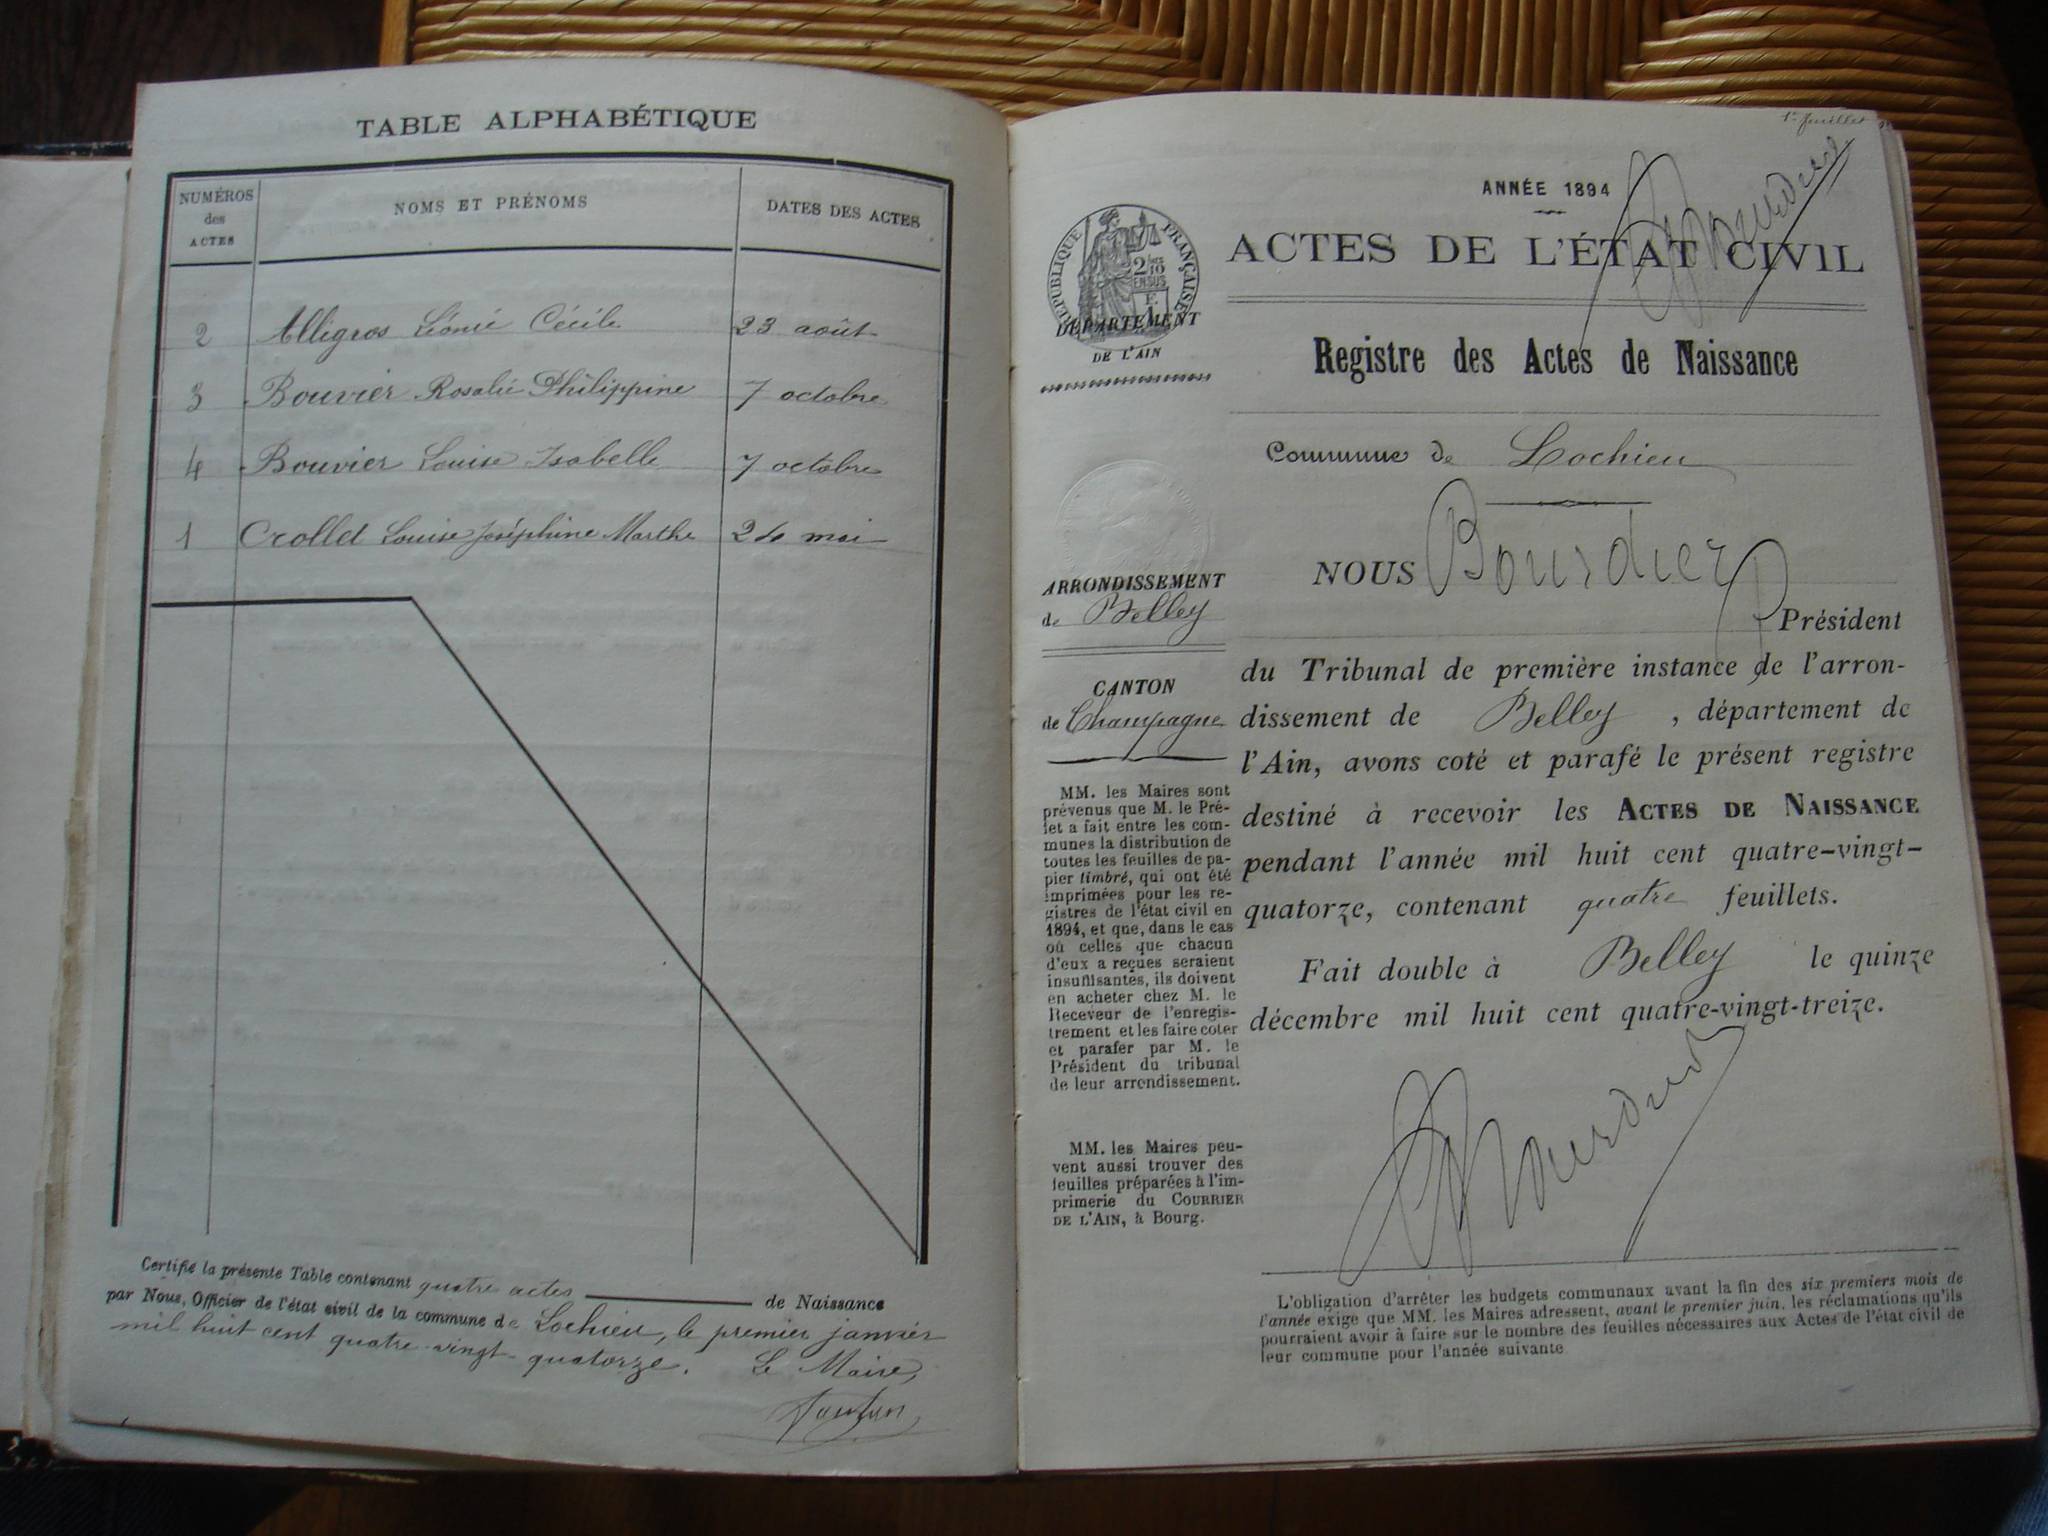 TABLE ALPHABÉTIQUE
NUMÉROS des ACTES
NOMS ET PRÉNOMS
DATES DES ACTES
2 Alligros Léonie Cécile 23 août
3 Bouvier Rosalie Philippine 7 octobre
4 Bouvier Louise Isabelle 7 octobre
1 Crollet Louise Joséphine Marthe 24 mai
Certifié la présente Table contenant quatre actes de Naissance
par Nous, Officier de l'état civil de la commune de Lochieu, le premier janvier
mil huit cent quatre-vingt-quatorze. Le Maire,
1er feuillet
ANNÉE 1894
ACTES DE L'ÉTAT CIVIL
RÉPUBLIQUE FRANÇAISE
2/10
EN SUS
DÉPARTEMENT
DE L'AIN
Registre des Actes de Naissance
Commune de Lochieu
ARRONDISSEMENT
de Belley
CANTON
de Champagne
MM. les Maires sont
prévenus que M. le Pré-
fet a fait entre les com-
munes la distribution de
toutes les feuilles de pa-
pier timbré, qui ont été
imprimées pour les re-
gistres de l'état civil en
1894, et que, dans le cas
où celles que chacun
d'eux a reçues seraient
insuffisantes, ils doivent
en acheter chez M. le
Receveur de l'enregis-
trement et les faire coter
et parafer par M. le
Président du tribunal
de leur arrondissement.
MM. les Maires peu-
vent aussi trouver des
feuilles préparées à l'im-
primerie du COURRIER
DE L'AIN, à Bourg.
NOUS Bourdier
Président
du Tribunal de première instance de l'arron-
dissement de Belley, département de
l'Ain, avons coté et parafé le présent registre
destiné à recevoir les ACTES DE NAISSANCE
pendant l'année mil huit cent quatre-vingt-
quatorze, contenant quatre feuillets.
Fait double à Belley le quinze
décembre mil huit cent quatre-vingt-treize.
L'obligation d'arrêter les budgets communaux avant la fin des six premiers mois de
l'année exige que MM. les Maires adressent, avant le premier juin, les réclamations qu'ils
pourraient avoir à faire sur le nombre des feuilles nécessaires aux Actes de l'état civil de
leur commune pour l'année suivante.